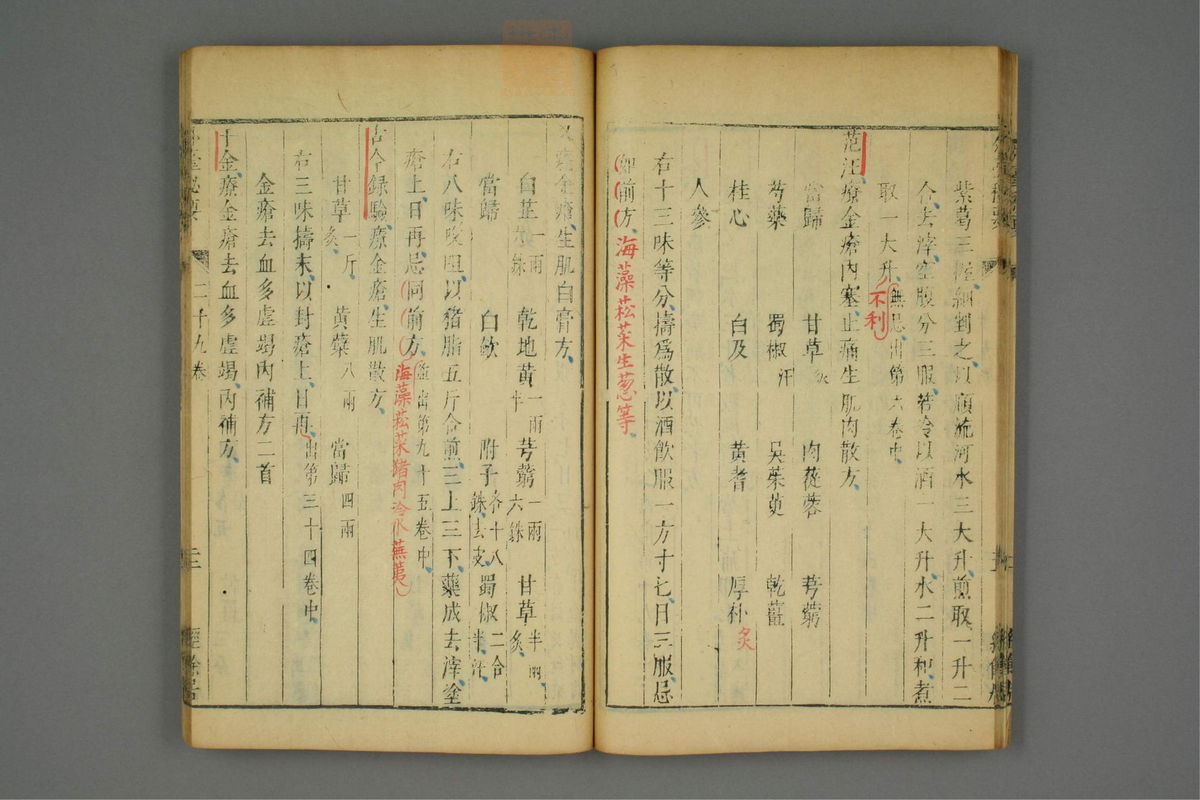 紫葛三握細剉之以順流河水三大升煎取一升二
合去滓空腹分三服若冷以酒一大升水二升和煮
取一大升不利無忌出第六卷中
范汪療金瘡內塞止痛生肌肉散方
當歸 甘草炙 肉蓯蓉 芎藭
芍藥 蜀椒汗 吳茱萸 乾薑
桂心 白及 黃耆 厚朴炙
人參
右十三味等分擣爲散以酒飲服一方寸匕日三服忌
如前方海藻菘菜生葱等
又療金瘡生肌白膏方
白芷一兩六銖 乾地黃一兩半 芎藭一兩六銖 甘草半兩炙
當歸 白斂 附子各十八銖去皮 蜀椒二合半汗
右八味㕮咀以豬脂五斤合煎三上三下藥成去滓塗
瘡上日再忌同前方海藻菘菜猪肉冷水蕪荑並出第九十五卷中
古今錄驗療金瘡生肌散方
甘草一斤炙 黃蘗八兩 當歸四兩
右三味擣末以封瘡上日再出第三十四卷中
金瘡去血多虛竭內補方二首
千金療金瘡去血多虛竭內補方
二十九卷
經餘居